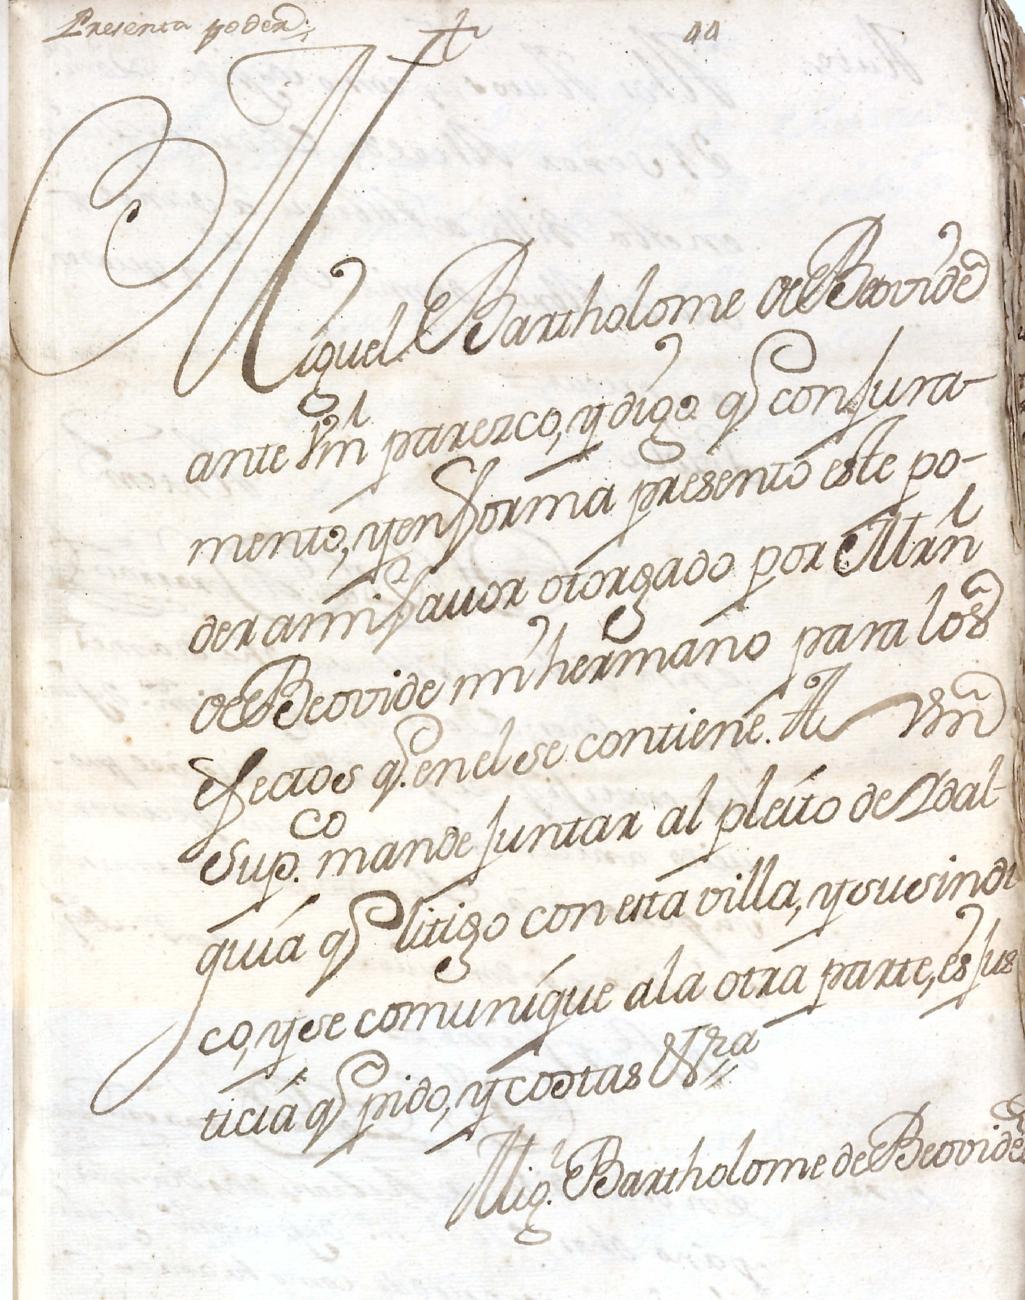 Presenta poder.
44
Miguel Bartholome de Beovide
ante Vm parezco, y digo q con jura-
mento, y en forma presento este po-
der a mi fauor otorgado por Mrn
de Beovide mi hermano para los
efectos q. en el se contiene. A Vm
Supco. mande juntar al pleito de Ydal-
guia q litigo con esta villa, y su sindi
co, y se comunique a la otra parte, es jus
ticia q pido, y costas &ra
Migl. Bartholome de Beovide